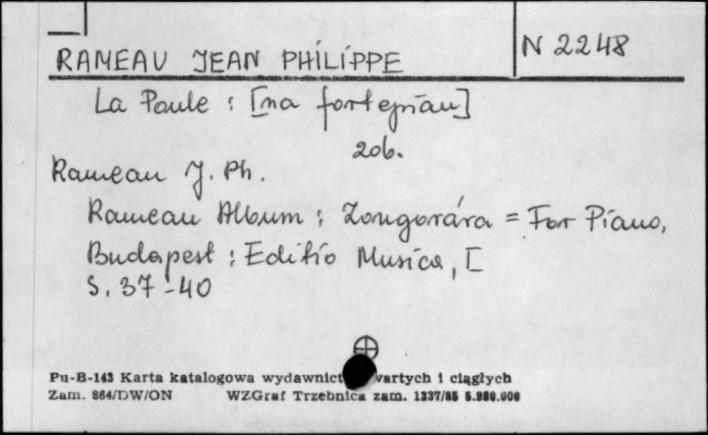 RAMEAU JEAN PHILIPPE
N 2248
La Poule : [na fortepian]
zob.
Rameau J. Ph.
Rameau Album : Zongorára = For Piano,
Budapest : Editio Musica, [
S. 37-40
Pu-B-143 Karta katalogowa wydawnict wartych i ciągłych
Zam. 864/DW/ON WZGraf Trzebnica zam. 1337/85 5.980.000